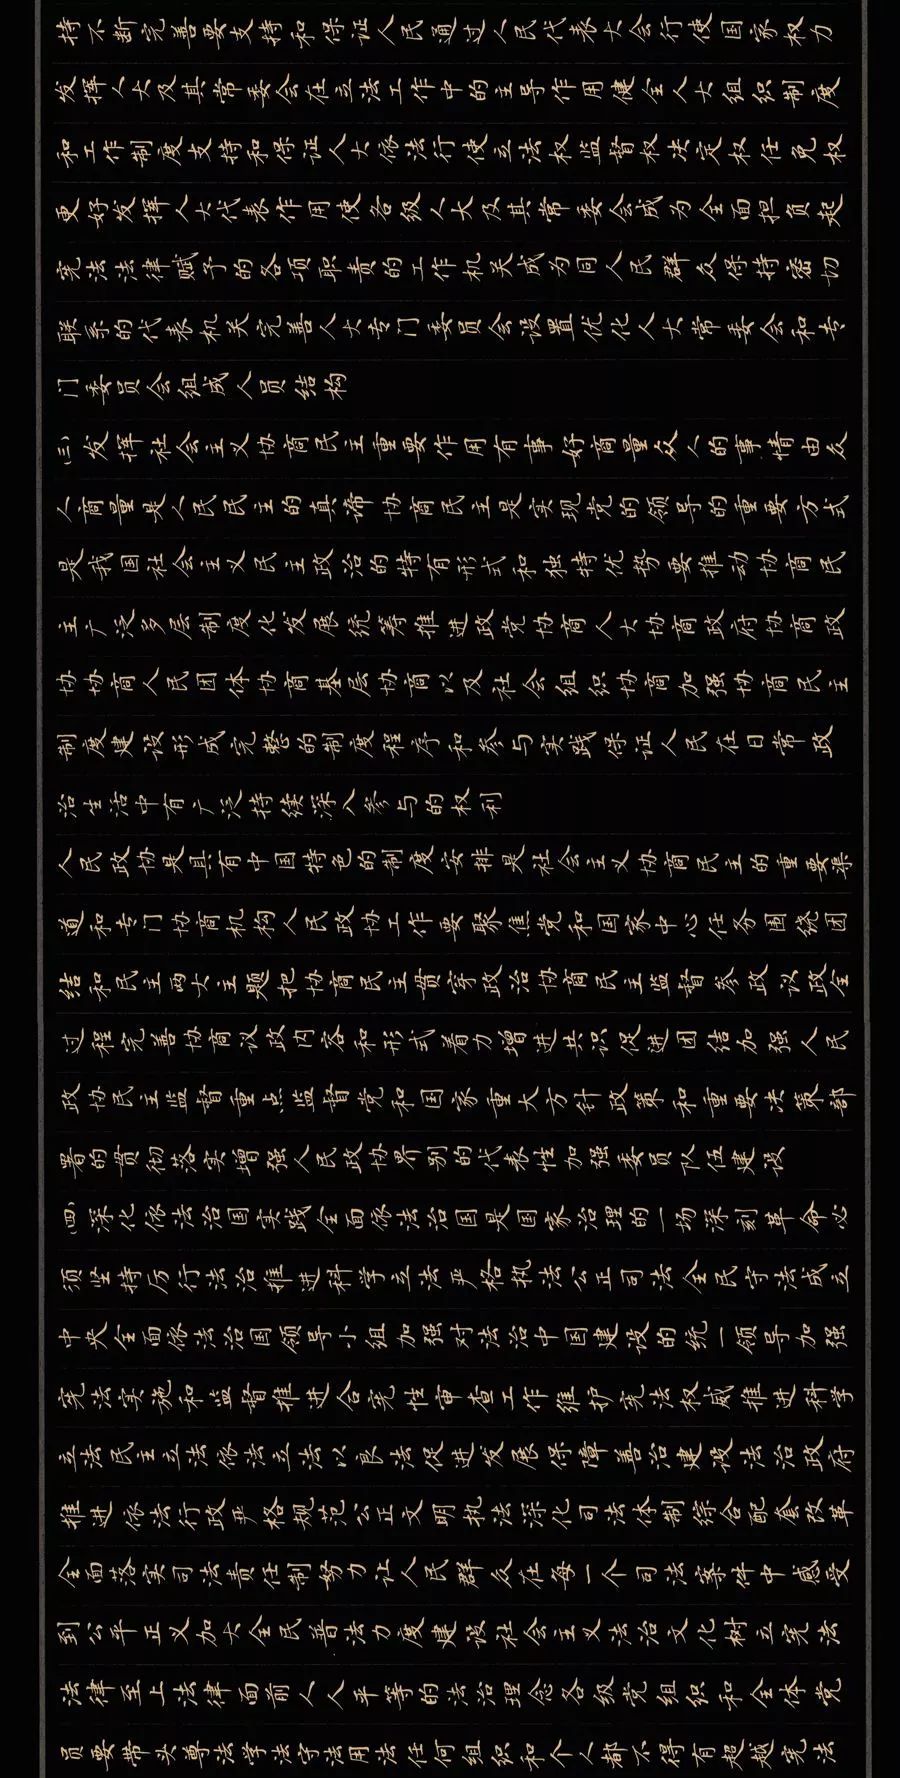 持不断完善要支持和保证人民通过人民代表大会行使国家权力
发挥人大及其常委会在立法工作中的主导作用健全人大组织制度
和工作制度支持和保证人大依法行使立法权监督权决定权任免权
更好发挥人大代表作用使各级人大及其常委会成为全面担负起
宪法法律赋予的各项职责的工作机关成为同人民群众保持密切
联系的代表机关完善人大专门委员会设置优化人大常委会和专
门委员会组成人员结构
(三)发挥社会主义协商民主重要作用有事好商量众人的事情由众
人商量是人民民主的真谛协商民主是实现党的领导的重要方式
是我国社会主义民主政治的特有形式和独特优势要推动协商民
主广泛多层制度化发展统筹推进政党协商人大协商政府协商政
协协商人民团体协商基层协商以及社会组织协商加强协商民主
制度建设形成完整的制度程序和参与实践保证人民在日常政
治生活中有广泛持续深入参与的权利
人民政协是具有中国特色的制度安排是社会主义协商民主的重要渠
道和专门协商机构人民政协工作要聚焦党和国家中心任务围绕团
结和民主两大主题把协商民主贯穿政治协商民主监督参政议政全
过程完善协商议政内容和形式着力增进共识促进团结加强人民
政协民主监督重点监督党和国家重大方针政策和重要决策部
署的贯彻落实增强人民政协界别的代表性加强委员队伍建设
(四)深化依法治国实践全面依法治国是国家治理的一场深刻革命必
须坚持厉行法治推进科学立法严格执法公正司法全民守法成立
中央全面依法治国领导小组加强对法治中国建设的统一领导加强
宪法实施和监督推进合宪性审查工作维护宪法权威推进科学
立法民主立法依法立法以良法促进发展保障善治建设法治政府
推进依法行政严格规范公正文明执法深化司法体制综合配套改革
全面落实司法责任制努力让人民群众在每一个司法案件中感受
到公平正义加大全民普法力度建设社会主义法治文化树立宪法
法律至上法律面前人人平等的法治理念各级党组织和全体党
员要带头尊法学法守法用法任何组织和个人都不得有超越宪法